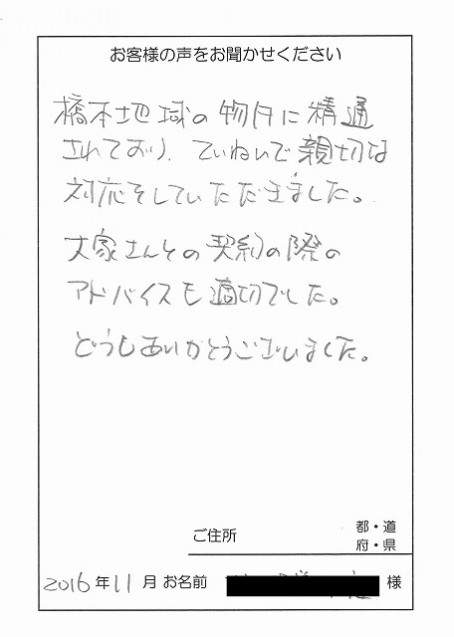 お客様の声をお聞かせください
橋本地域の物件に精通
されており、ていねいで親切な
対応をしていただきました。
大家さんとの契約の際の
アドバイスも適切でした。
どうもありがとうございました。
ご住所
都・道
府・県
2016年11月 お名前 様